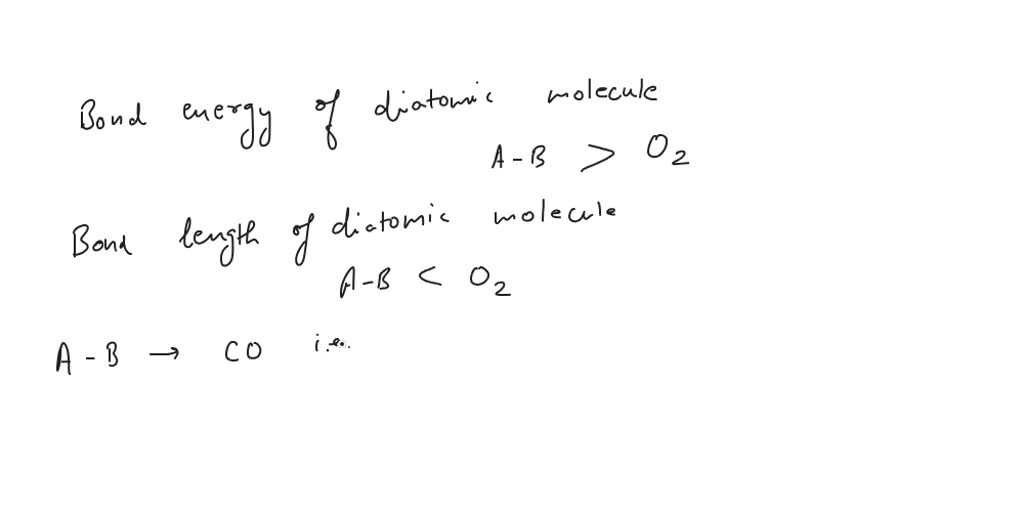 Bond energy of diatomic molecule
A-B > O2
Bond length of diatomic molecule
A-B < O2
A-B → CO i.e.